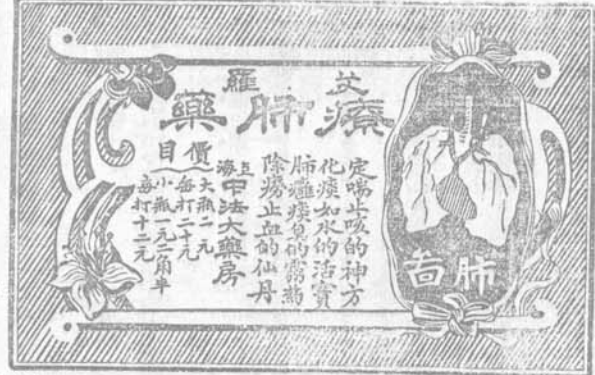 艾羅
療肺藥
定喘止咳的神方
化痰如水的活寶
肺癰痰臭的靈藥
除癆止血的仙丹
上海中法大藥房
價目
大瓶二元
每打二十元
小瓶一元二角半
每打十二元
肺